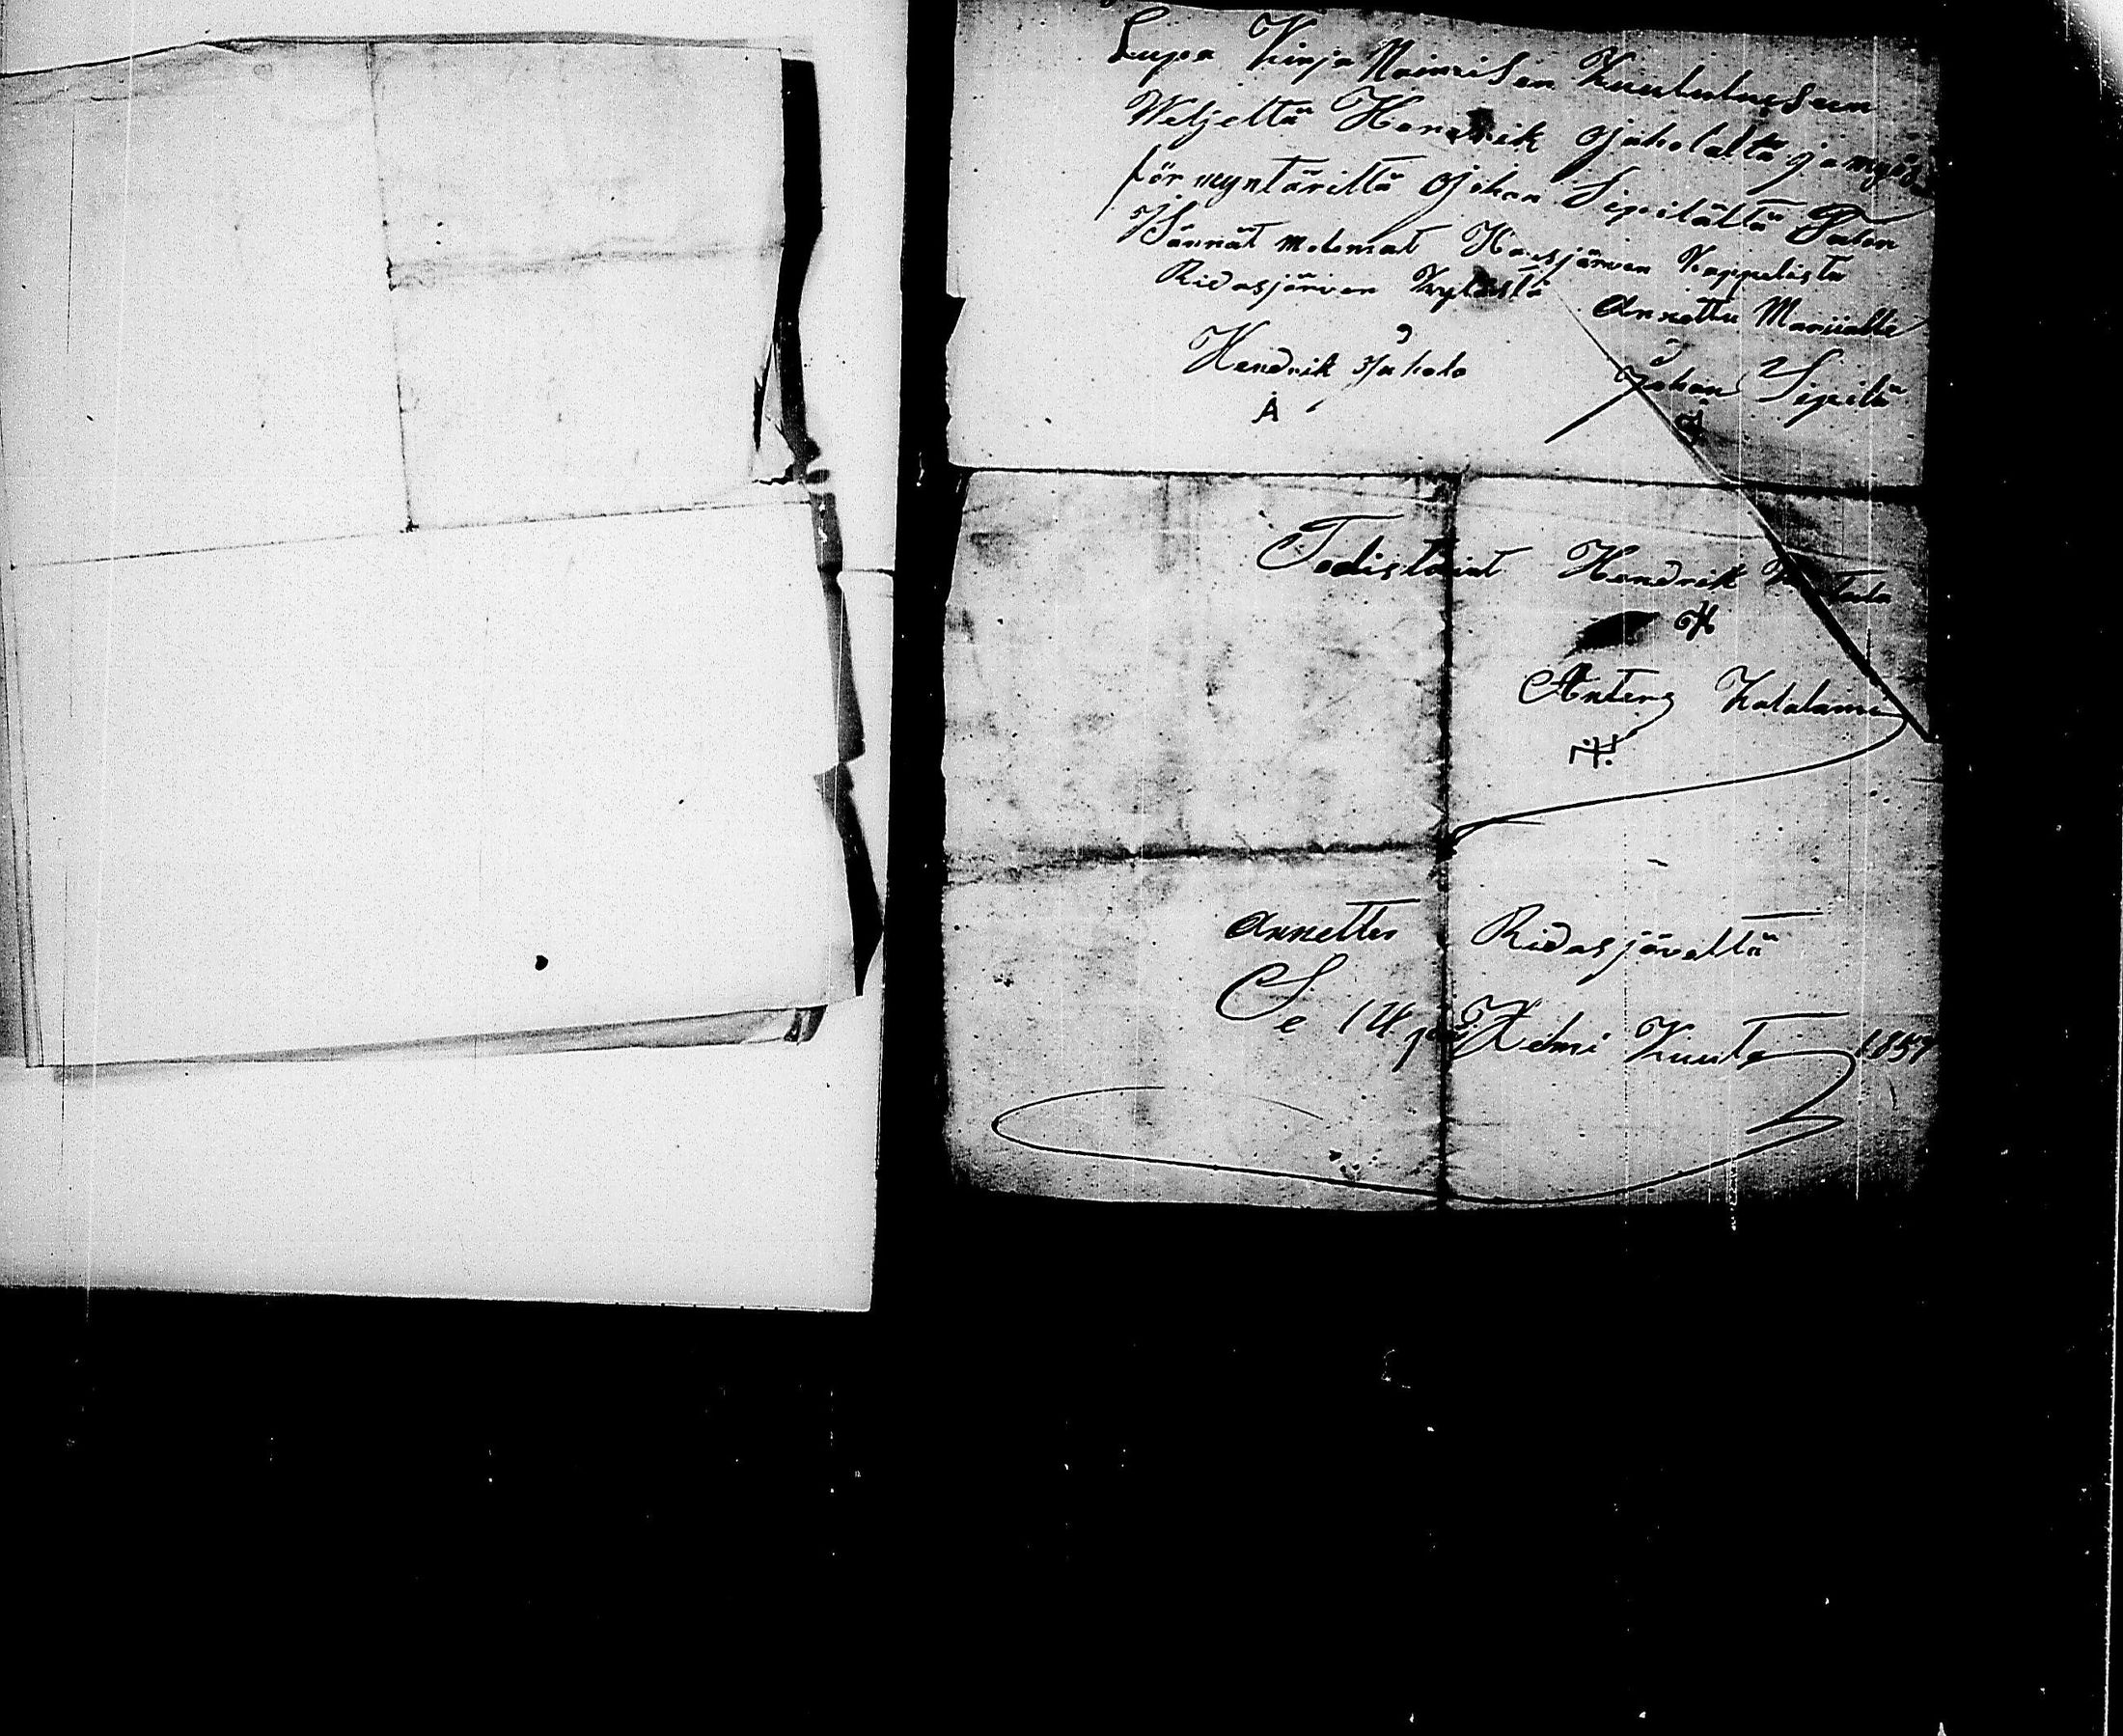 Lupa Kirja Naimisen Kuulutuxseen
Weljeltä Hendrik Ojaholalta ja myös
för myntäriltä Johan Sipilältä Talon
Isännät molemat Hausjärven Kappelista
Ridasjärven Kylästä Annettu Mariialle
Hendrik Ojahola Johan Sipilä
Todistavat Hendrik
Anters Katalamu
Annettu Ridasjäveltä
Se 14 Helmi Kuuta 1857